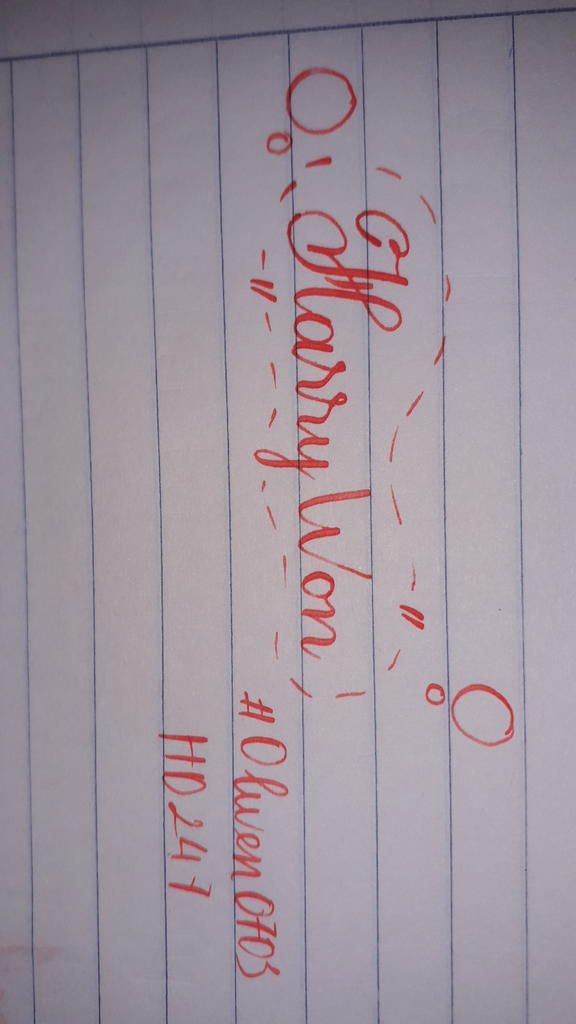 Harry Won
#Oliwen0703
HD247